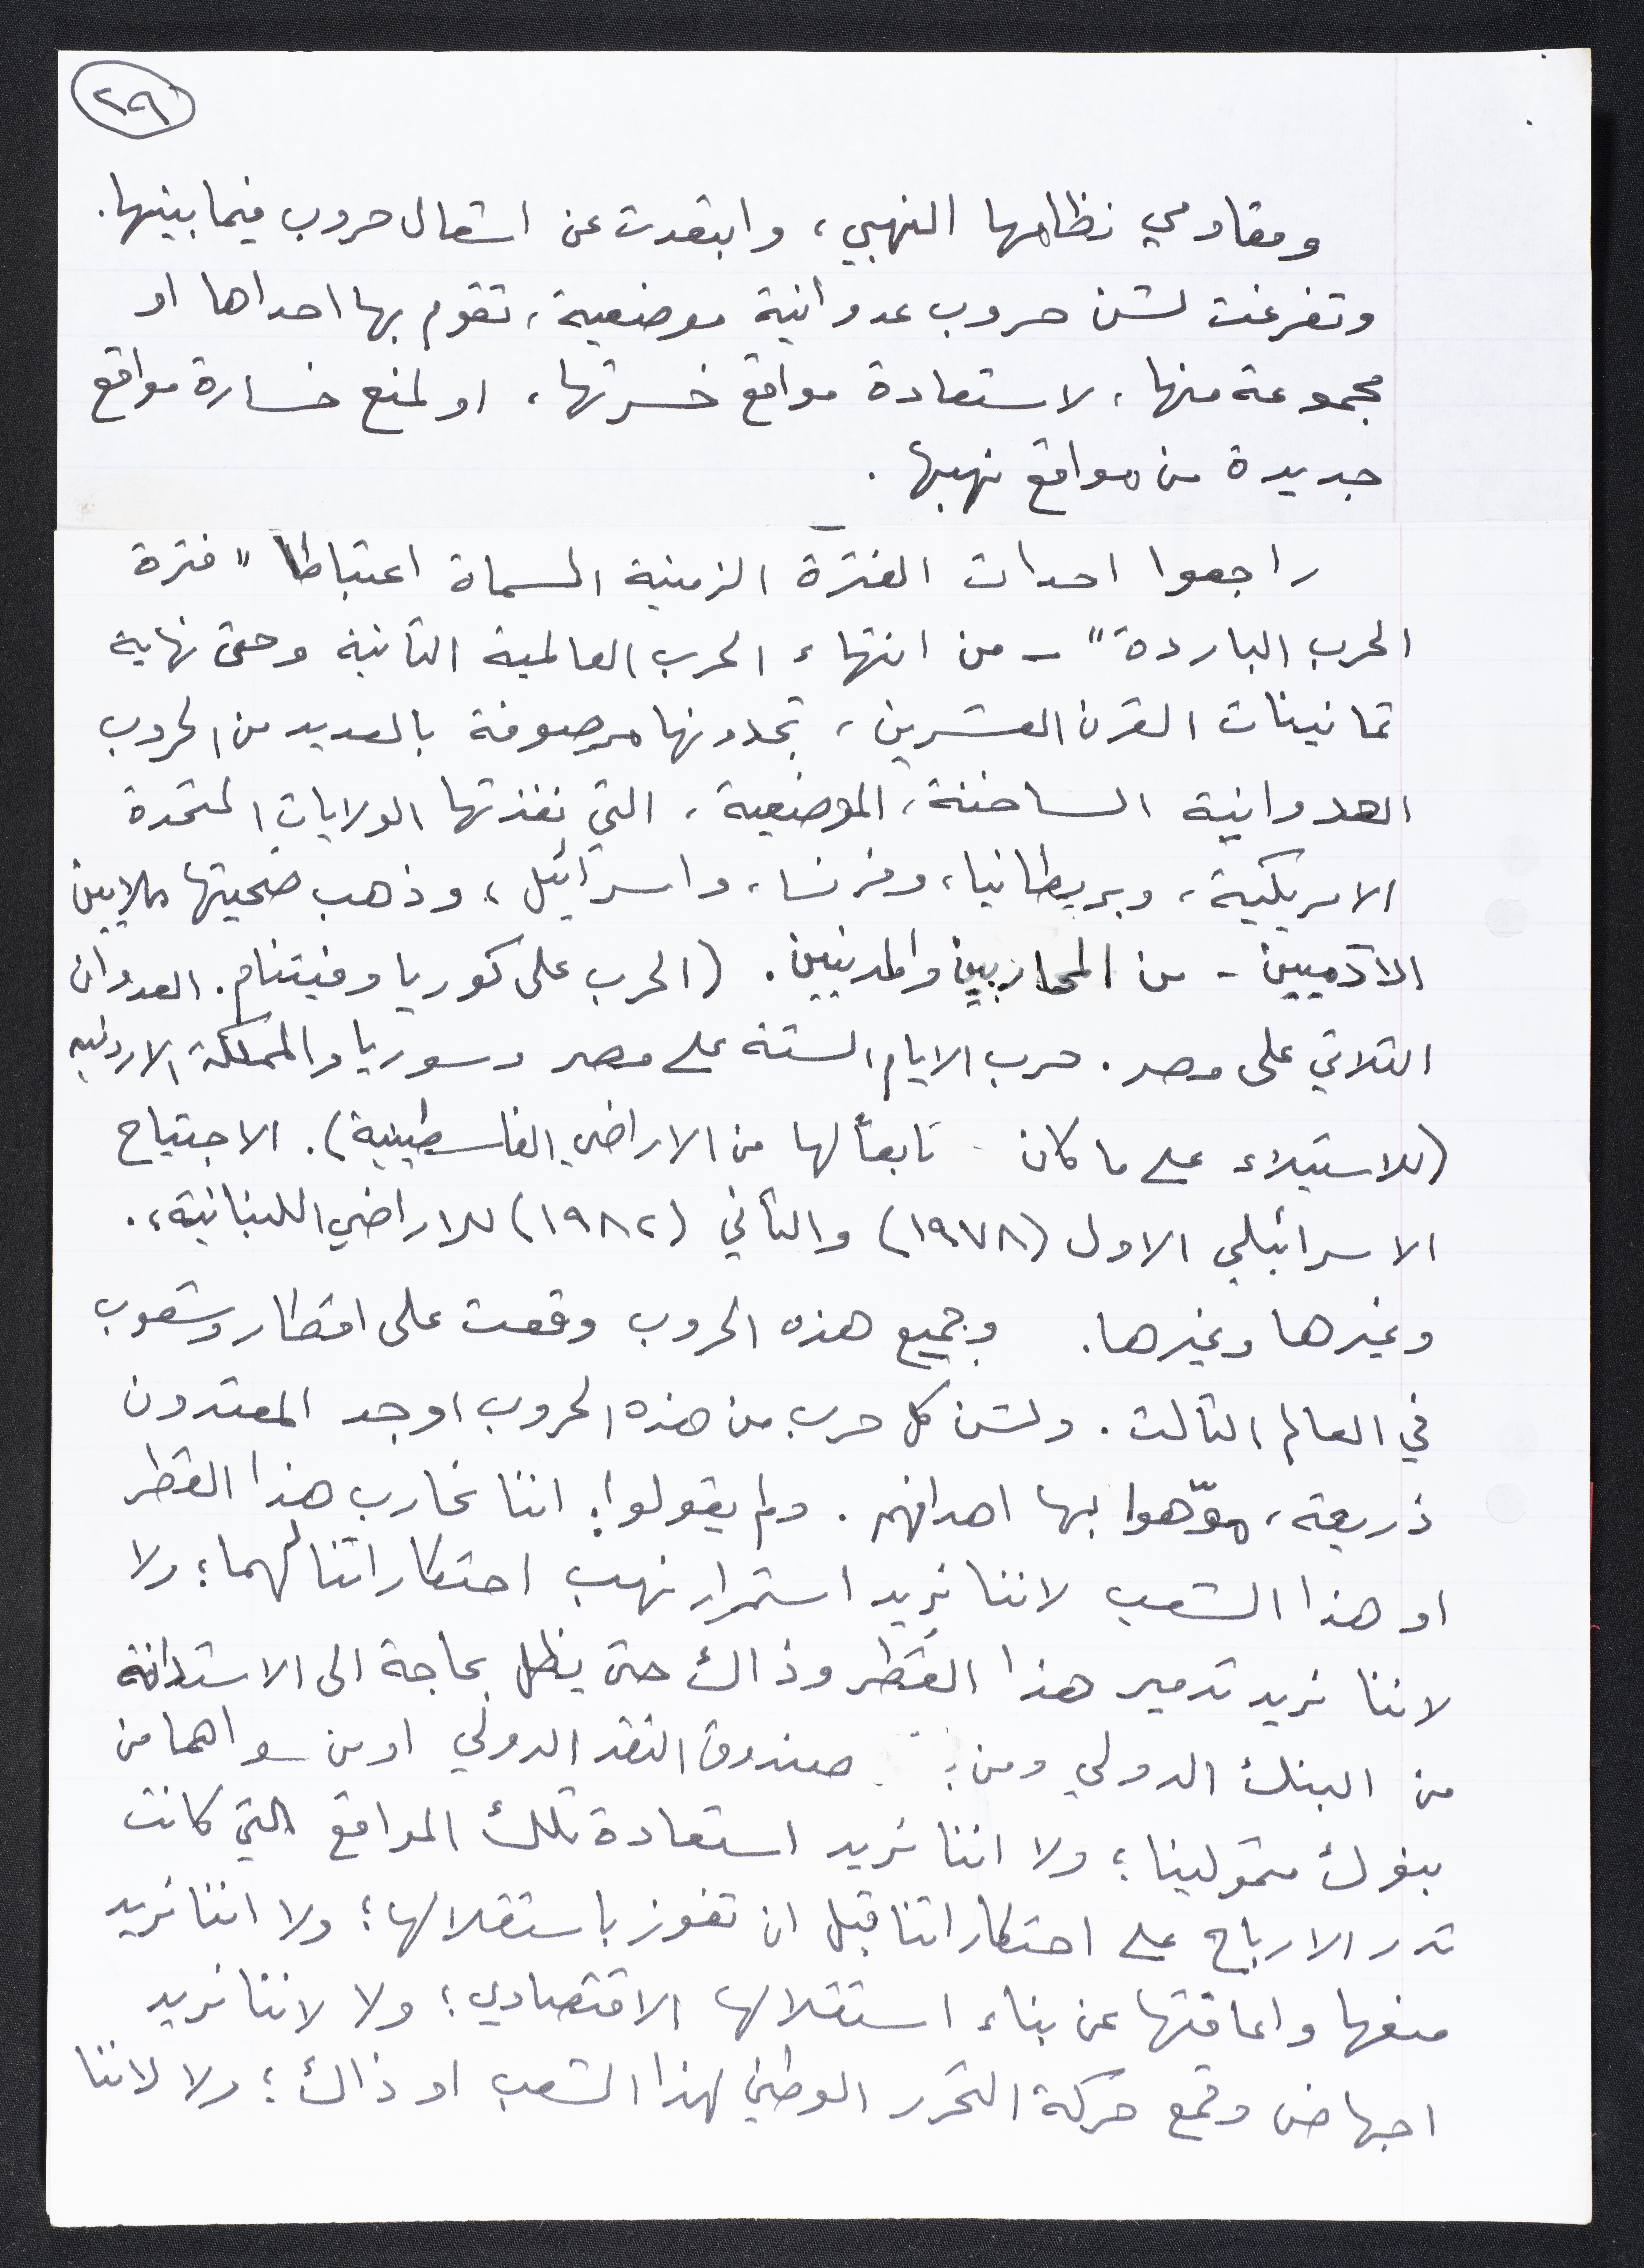 ٢٩
ومقاومي نظامها النهبي، وابتعدت عن اشعال حروب فيما بينها.
وتفرغت لشن حروب عدوانية موضعية، تقوم بها احداها او
مجموعة منها، لاستعادة مواقع خسرتها، او لمنع خسارة مواقع
جديدة من مواقع نهبها.
راجعوا احداث الفترة الزمنية المسماة اعتباطا "فترة
الحرب الباردة" - من انتهاء الحرب العالمية الثانية وحتى نهاية
ثمانينات القرن العشرين، تجدونها مرصوفة بالعديد من الحروب
العدوانية الساخنة، الموضعية، التي نفذتها الولايات المتحدة
الامريكية، وبريطانيا، وفرنسا، واسرائيل، وذهب ضحيتها ملايين
الآدميين - من المحاربين والمدنيين. (الحرب على كوريا وفيتنام. العدوان
الثلاثي على مصر. حرب الايام الستة على مصر وسوريا والمملكة الاردنيه
(للاستيلاء على ما كان تابعاً لها من الاراضي الفلسطينية). الاجتياح
الاسرائيلي الاول (١٩٧٨) والثاني (١٩٨٢) للاراضي اللبنانية،.
وغيرها وغيرها. وجميع هذه الحروب وقعت على اقطار وشعوب
في العالم الثالث. ولشن كل حرب من هذه الحروب اوجد المعتدون
ذريعة، موّهوا بها اهدافهم. ولم يقولوا: اننا نحارب هذا القطر
او هذا الشعب لاننا نريد استمرار نهب احتكاراتنا لهما؛ ولا
لاننا نريد تدمير هذا القطر وذاك حتى يظل بحاجة الى الاستدانة
من البنك الدولي ومن صندوق النقد الدولي او من سواهما من
بنوك متموّلينا؛ ولا اننا نريد استعادة تلك المواقع التي كانت
تدر الارباح على احتكاراتنا قبل ان تفوز باستقلالها؛ ولا اننا نريد
منعها واعاقتها عن بناء استقلالها الاقتصادي؛ ولا لاننا نريد
اجهاض وقمع حركة التحرر الوطني لهذا الشعب او ذاك؛ ولا لاننا